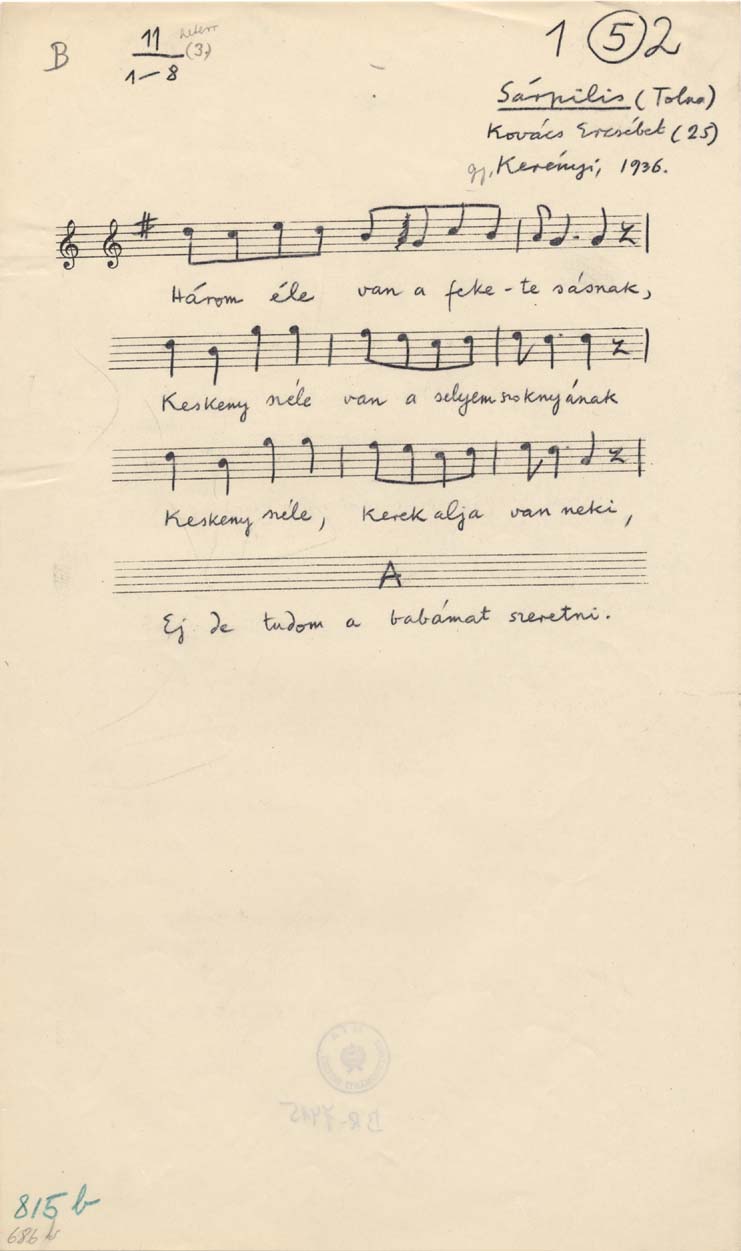 B
11
(3.)
1–8
1 5 2
Sárpilis (Tolna)
Kovács Erzsébet (25)
gy. Kerényi, 1936.
Három éle van a feke-te sásnak,
Keskeny széle van a selyemszoknyának
Keskeny széle, kerek alja van neki,
A
Ej de tudom a babámat szeretni.
BR-7415
815 b
686